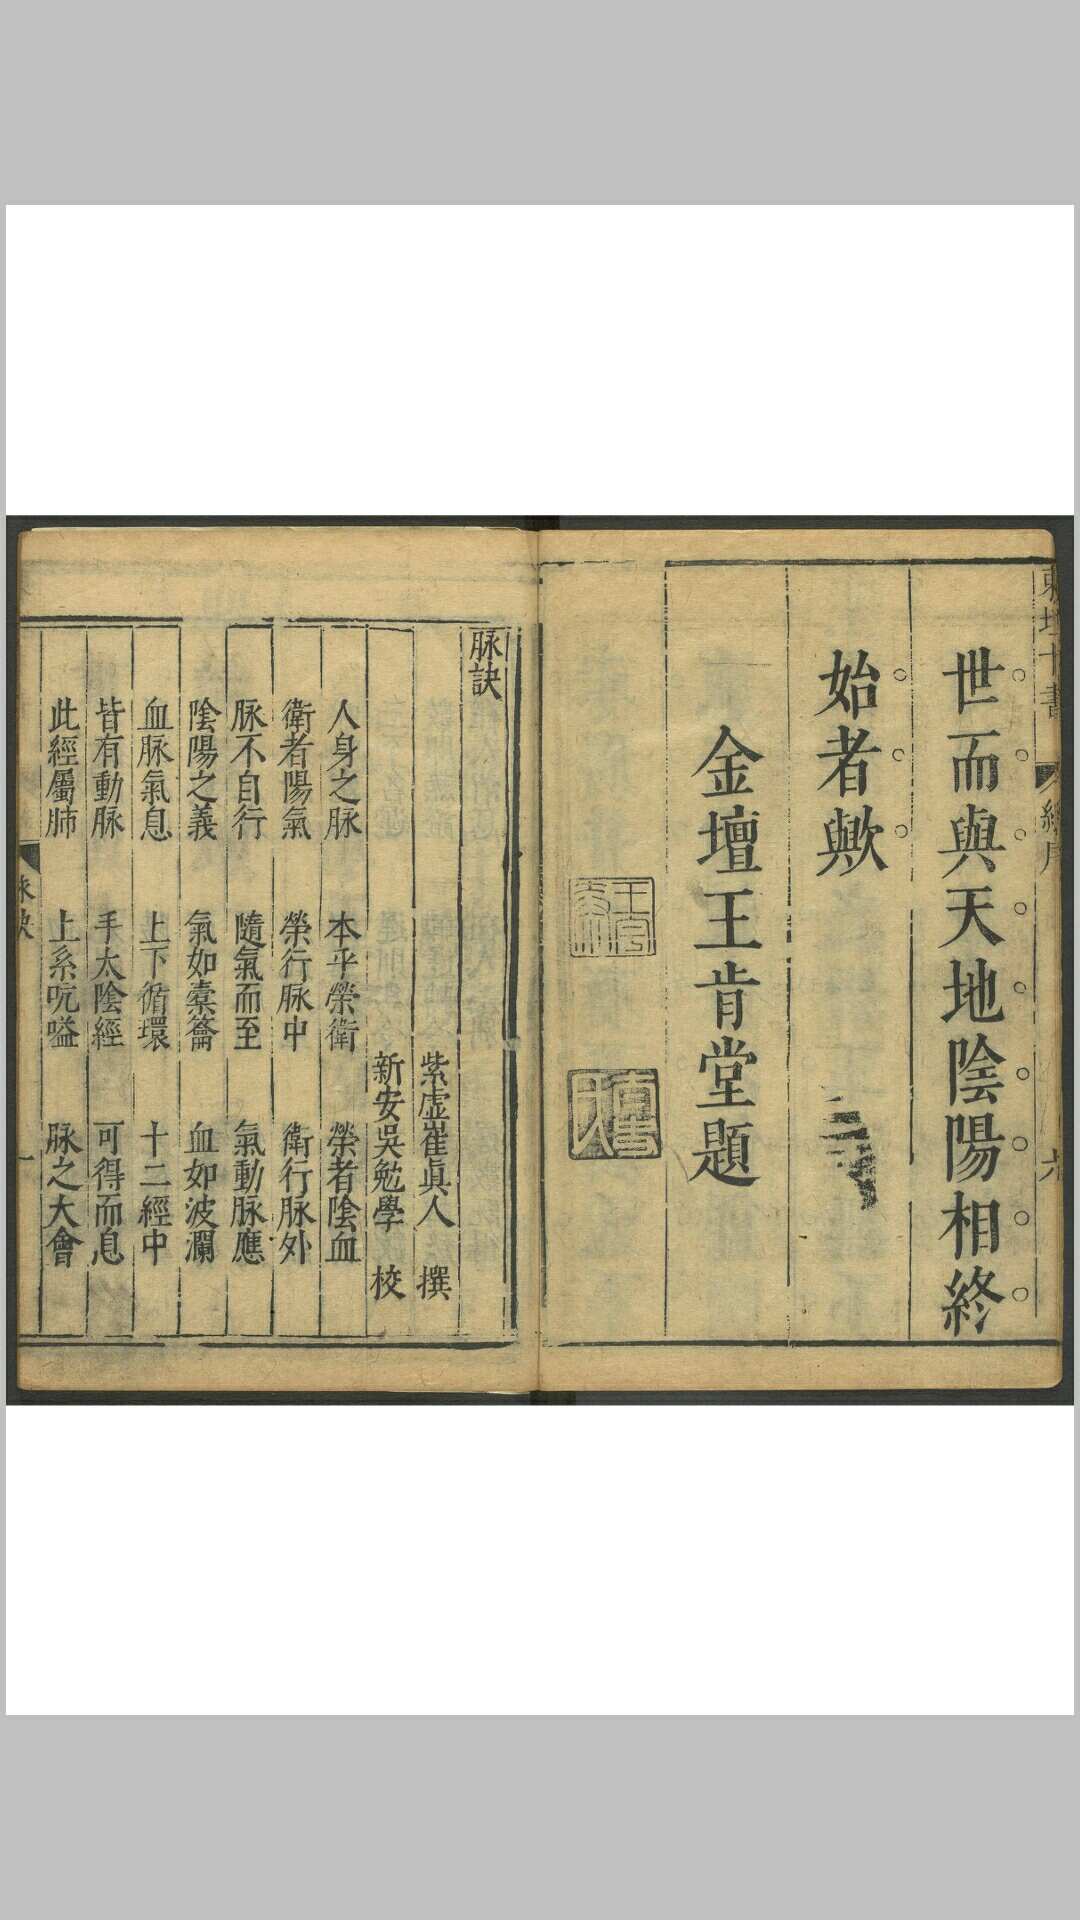 世而與天地陰陽相終
始者歟
金壇王肯堂題
脉訣
紫虛崔眞人 撰
新安吳勉學 校
人身之脉 本乎榮衛 榮者陰血
衛者陽氣 榮行脉中 衛行脉外
脉不自行 隨氣而至 氣動脉應
陰陽之義 氣如橐籥 血如波瀾
血脉氣息 上下循環 十二經中
皆有動脉 手太陰經 可得而息
此經屬肺 上系吭嗌 脉之大會
脉訣
一